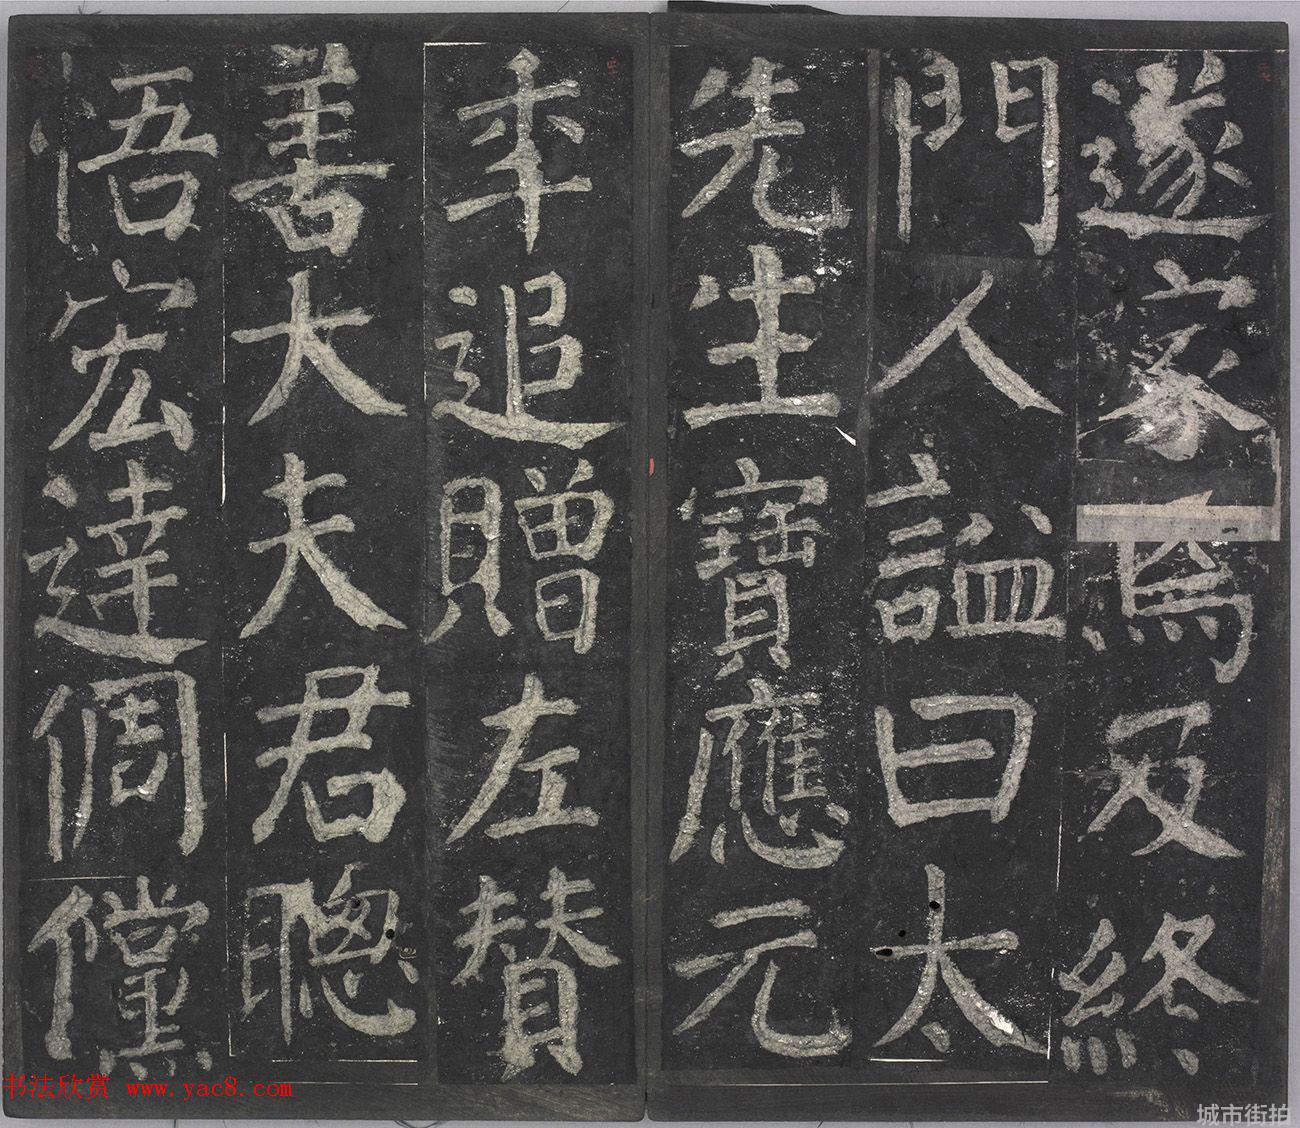 遂家焉及終
門人謚曰太
先生寶應元
年追贈左贊
善大夫君聰
悟宏達倜儻
书法欣赏 www.yac8.com
城市街拍